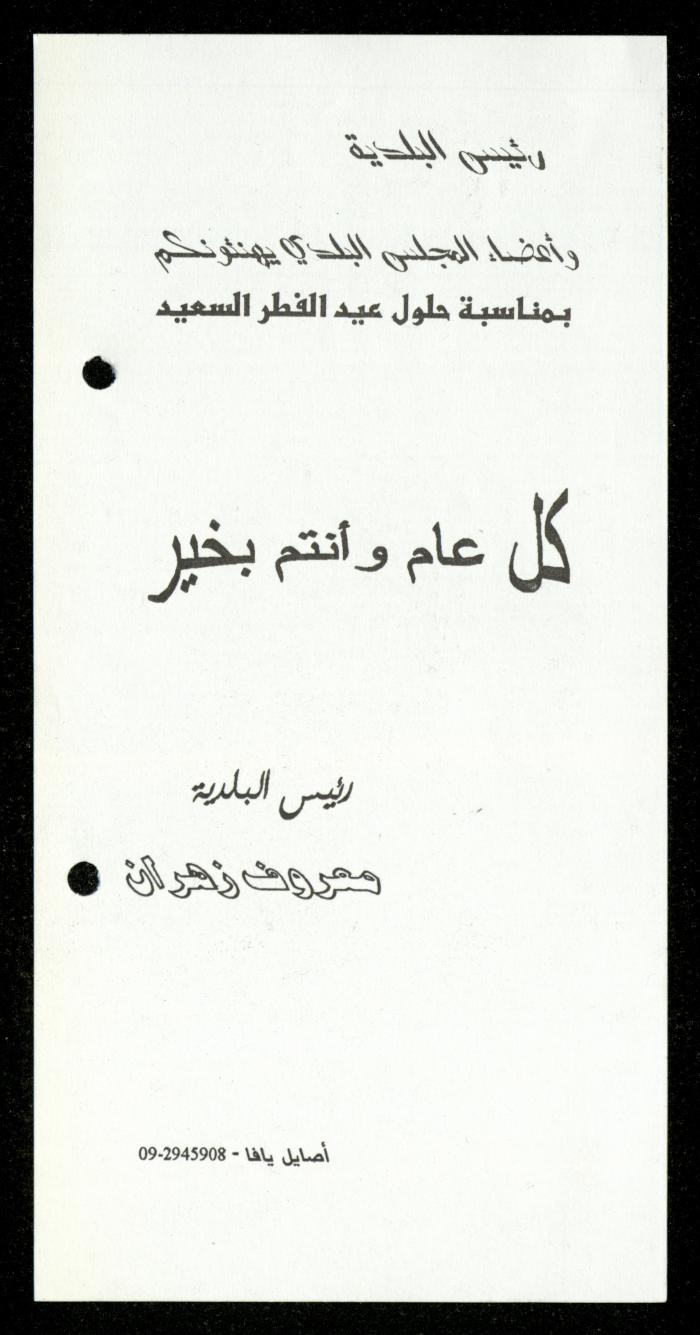 رئيس البلدية
وأعضاء المجلس البلدي يهنئونكم
بمناسبة حلول عيد الفطر السعيد
كل عام وأنتم بخير
رئيس البلدية
معروف زهران
أصايل يافا - 09-2945908